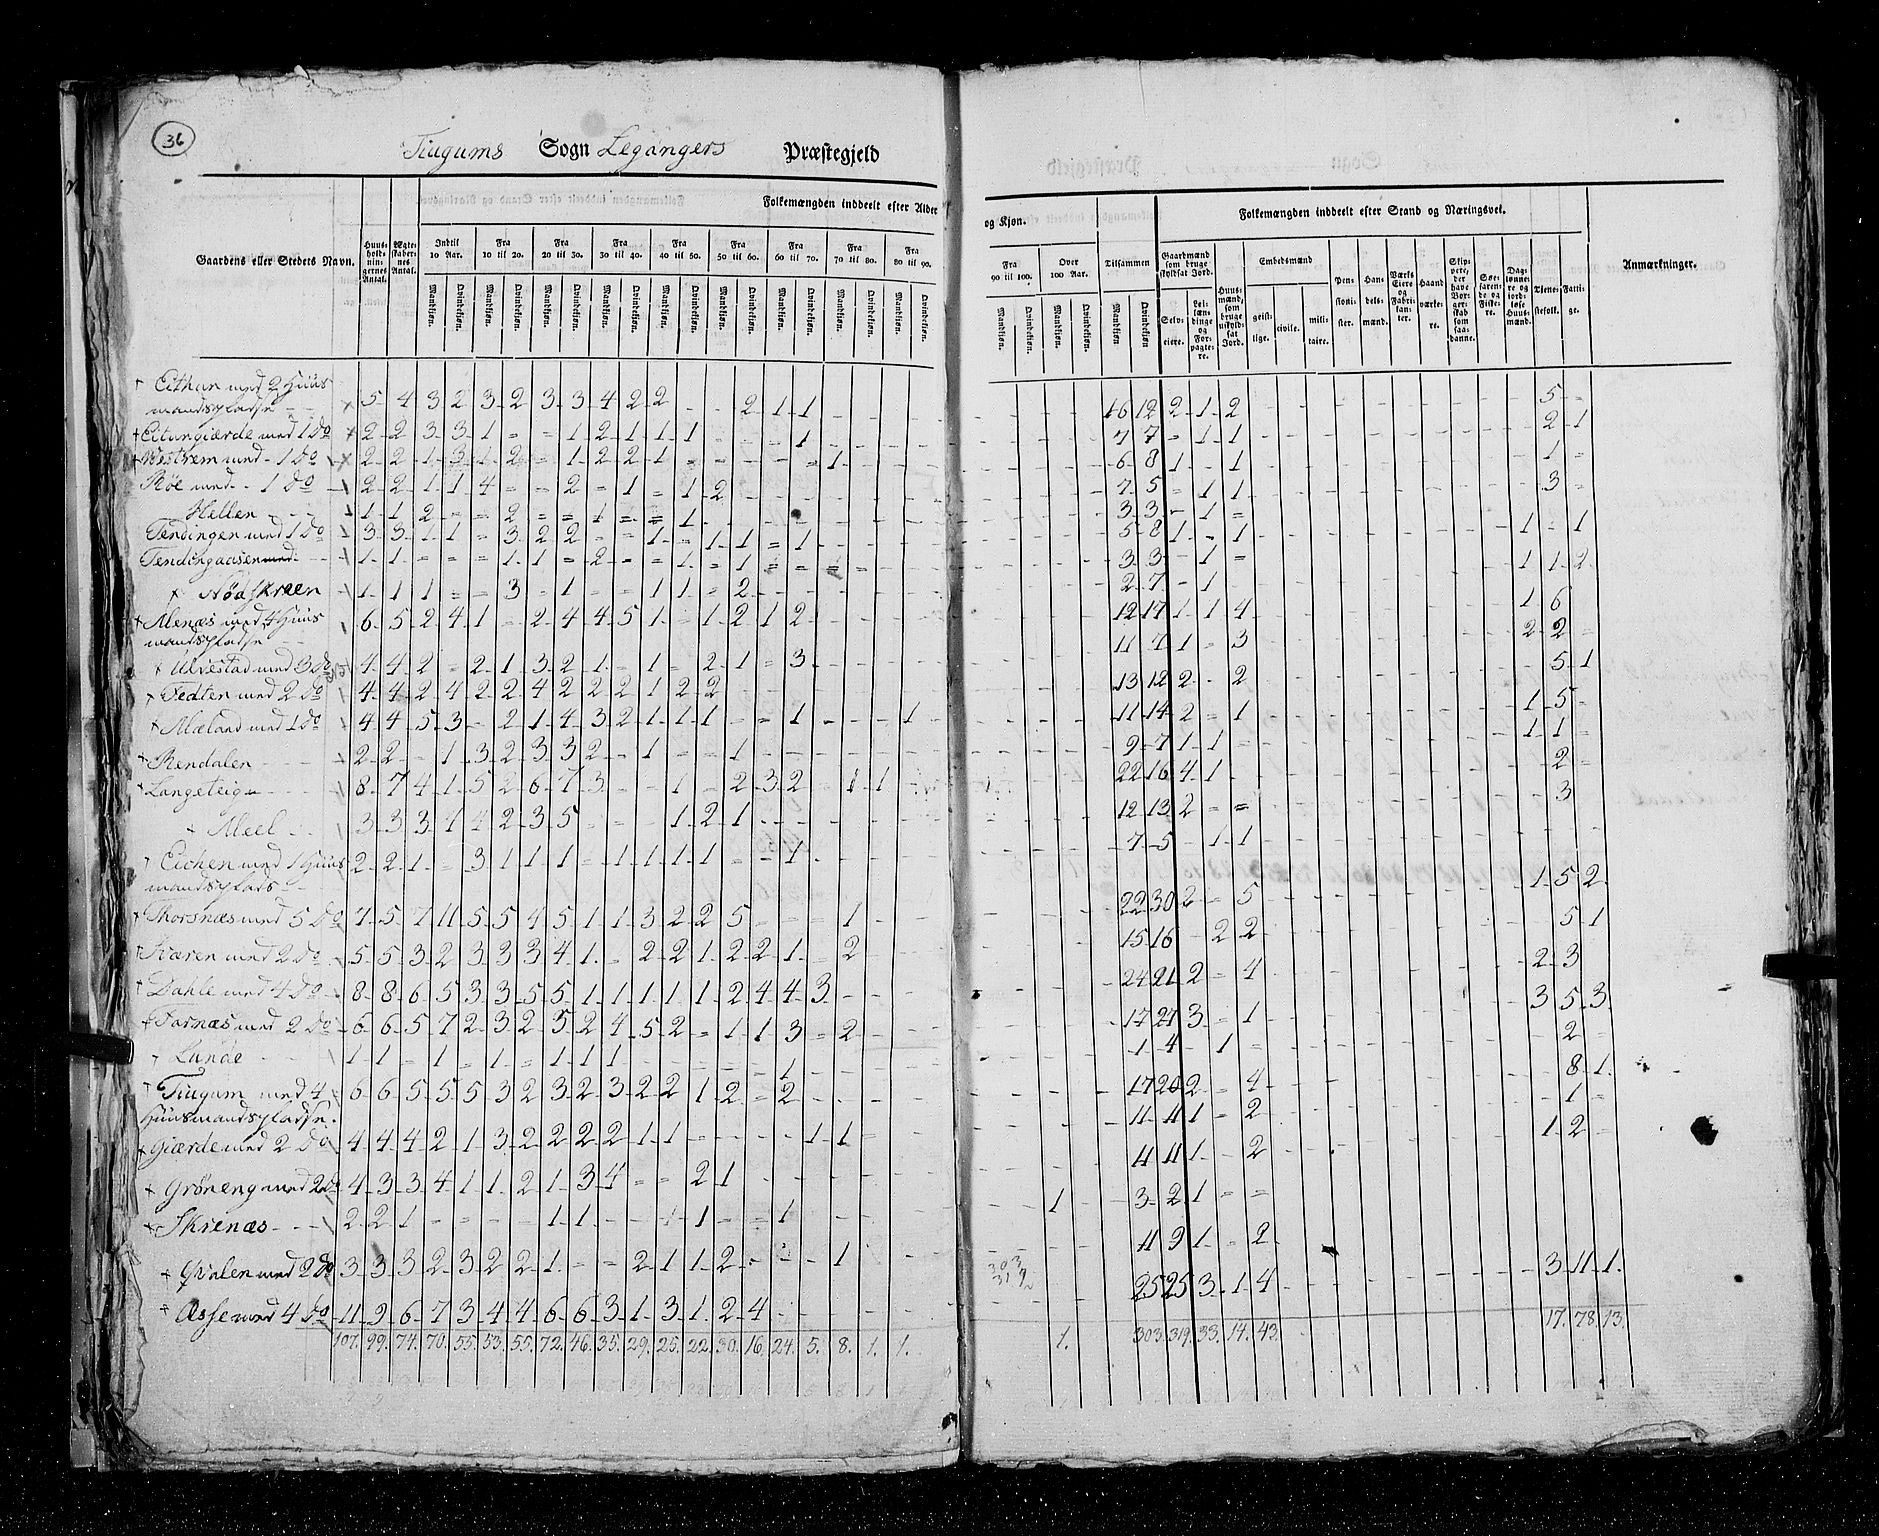 36
Tiugums Sogn Legangers Præstegjeld
Folkemængden inddeelt efter Alder og Kjøn.
Folkemængden inddeelt efter Stand og Næringsvei.
Gaardens eller Stedets Navn.
Huus- holdnin- gernes Antal.
Ægte- skaber- nes Antal.
Indtil 10 Aar.
Fra 10 til 20.
Fra 20 til 30.
Fra 30 til 40.
Fra 40 til 50.
Fra 50 til 60.
Fra 60 til 70.
Fra 70 til 80.
Fra 80 til 90.
Fra 90 til 100.
Over 100 Aar.
Tilsammen
Mandkjøn. Qvindekjøn.
Gaardmænd som bruge skyldsat Jord.
Selv- eiere.
Lei- læn- dinge og For- pagte- re.
Huus- mænd, som bruge uskyld- sat Jord.
Embedsmænd
geist- lige. civile. mili- taire.
Pen- sioni- ster.
Han- dels- mænd.
Værks Eiere og Fabri- kan- ter.
Haand værke- re.
Skip- pere, der have Bor- gerskab som saa- danne.
Søe- farende og Fiske-
Dag- lønne- re og jord- løse Huus- mænd.
Tjene- stefolk.
Fatti- ge.
Anmærkninger.
Eithun med 2 Huus
mandspladse 5 4 3 2 3 2 3 3 4 2 2 - - 2 1 1 16 12 2 1 2 5
Eitungiærde med 1 do 2 2 3 3 1 = = 1 2 1 1 1 1 7 7 = 1 1 2 1
Vestrem med 1 do 2 2 1 3 1 2 = 1 2 2 1 1 6 8 1 1 1
Röe med 1 do 2 2 1 1 4 = = 2 = 1 = 1 2 7 5 = 1 1 3
Hellen 1 1 2 = = 2 = = 1 = = 1 3 3 - 1 =
Tendingen med 1 do 3 3 1 1 = 3 2 2 = = 1 = 1 1 = 1 5 8 1 - 1 1 - 1
Tendingaasen 1 1 = = = 1 1 = 2 = = 1 = 1 3 3 - 1 = 1 1 2
Nödskreen 1 1 1 = = 3 = 1 = = 1 1 = 2 2 7 - 1
Menæs med 4 Huus
mandspladse 6 5 2 4 1 - 2 4 4 5 1 = 1 2 1 2 12 17 1 1 4 1 6
Ulvestad med 3 do 4 4 2 = 2 1 3 2 1 = 1 = 2 1 = 3 11 7 1 = 3 2 2
Fedten med 2 do 4 4 2 4 2 2 4 2 2 2 1 2 2 13 12 2 - 2 5 1
Mæland med 1 do 4 4 5 3 - 2 1 4 3 2 1 1 1 - = 1 - - - 1 11 14 2 = 1 1 5
Rendalen 2 2 - 1 3 2 3 3 2 - 1 = = 1 9 7 1 1 = 1 1
Langeteig 8 7 4 1 5 2 6 7 3 = - 1 - 2 3 2 - 1 1 22 16 4 1 2
Meel 3 3 3 1 4 2 3 5 = - - 1 2 1 12 13 2 = = 3
Eichen med 1 Huus
mandsplads 2 2 1 = 3 1 1 1 = 1 1 1 1 = = 1 7 5 - 1 1
Thorsnæs med 5 do 7 5 7 11 5 5 4 5 1 1 3 2 2 5 = = = 1 22 30 2 = 5 1 5 2
5 5 3 2 3 3 3 4 1 = 2 2 1 2 2 1 - 2 15 16 - 2 2 5 1
Dahle med 4 do 8 8 6 5 3 3 5 5 1 1 1 1 1 2 4 4 3 24 21 2 = 4 2 3
Farnæs med 2 do 6 6 5 7 2 3 2 5 2 4 5 2 = 1 1 3 = 2 17 27 3 = 1 3 5 3
Lunde 1 1 = 1 = 1 = 1 1 1 1 1 4 - 1 = 2
Tiugum med 4
Huusmandspladse 6 6 5 5 5 3 2 3 2 3 2 2 1 2 = 2 17 20 2 = 4 8 1
Giærde med 2 do 4 4 4 2 1 3 2 2 2 2 1 1 1 1 11 11 1 = 2 1
Gröneng med 2 do 4 3 3 4 1 1 2 1 3 4 = = 2 1 11 11 1 - 2 1 2
Skrenæs 2 2 1 = = 1 1 1 1 = = 1 1 3 2 1 = =
Qvalen med 2 do 3 3 3 2 3 2 2 1 = = 2 1 1 2 1 11 9 1 = 2
Asse med 4 do 11 9 6 7 3 4 4 6 6 3 1 3 1 2 4 25 25 3 1 4 3 11 1
107. 99. 74. 70. 55. 53. 55. 72. 46. 35. 29. 25. 22. 30. 16. 24. 5. 8. 1. 1. 1. 303. 319. 33. 14. 43. 17. 78. 13.
303
319